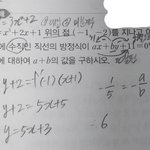 3x²+2
= x³+2x+1 위의 점 (-1, -2)를 지나고 이
에 수직인 직선의 방정식이 ax+by+11=0
에 대하여 a+b의 값을 구하시오.
y+2=f'(-1)(x+1)
-1/5 = -a/b
y+2=5x+5
y=5x+3
-6